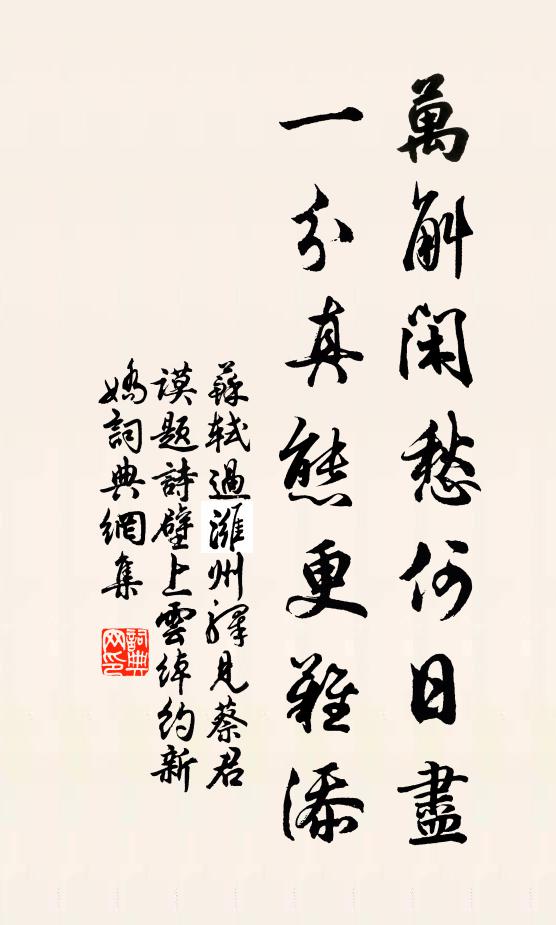 萬斛閑愁何日盡
一分真態更難添
蘇軾過濰州驛見蔡君
謨題詩壁上雲綽約新
嬌詞典網集
詞典
网印